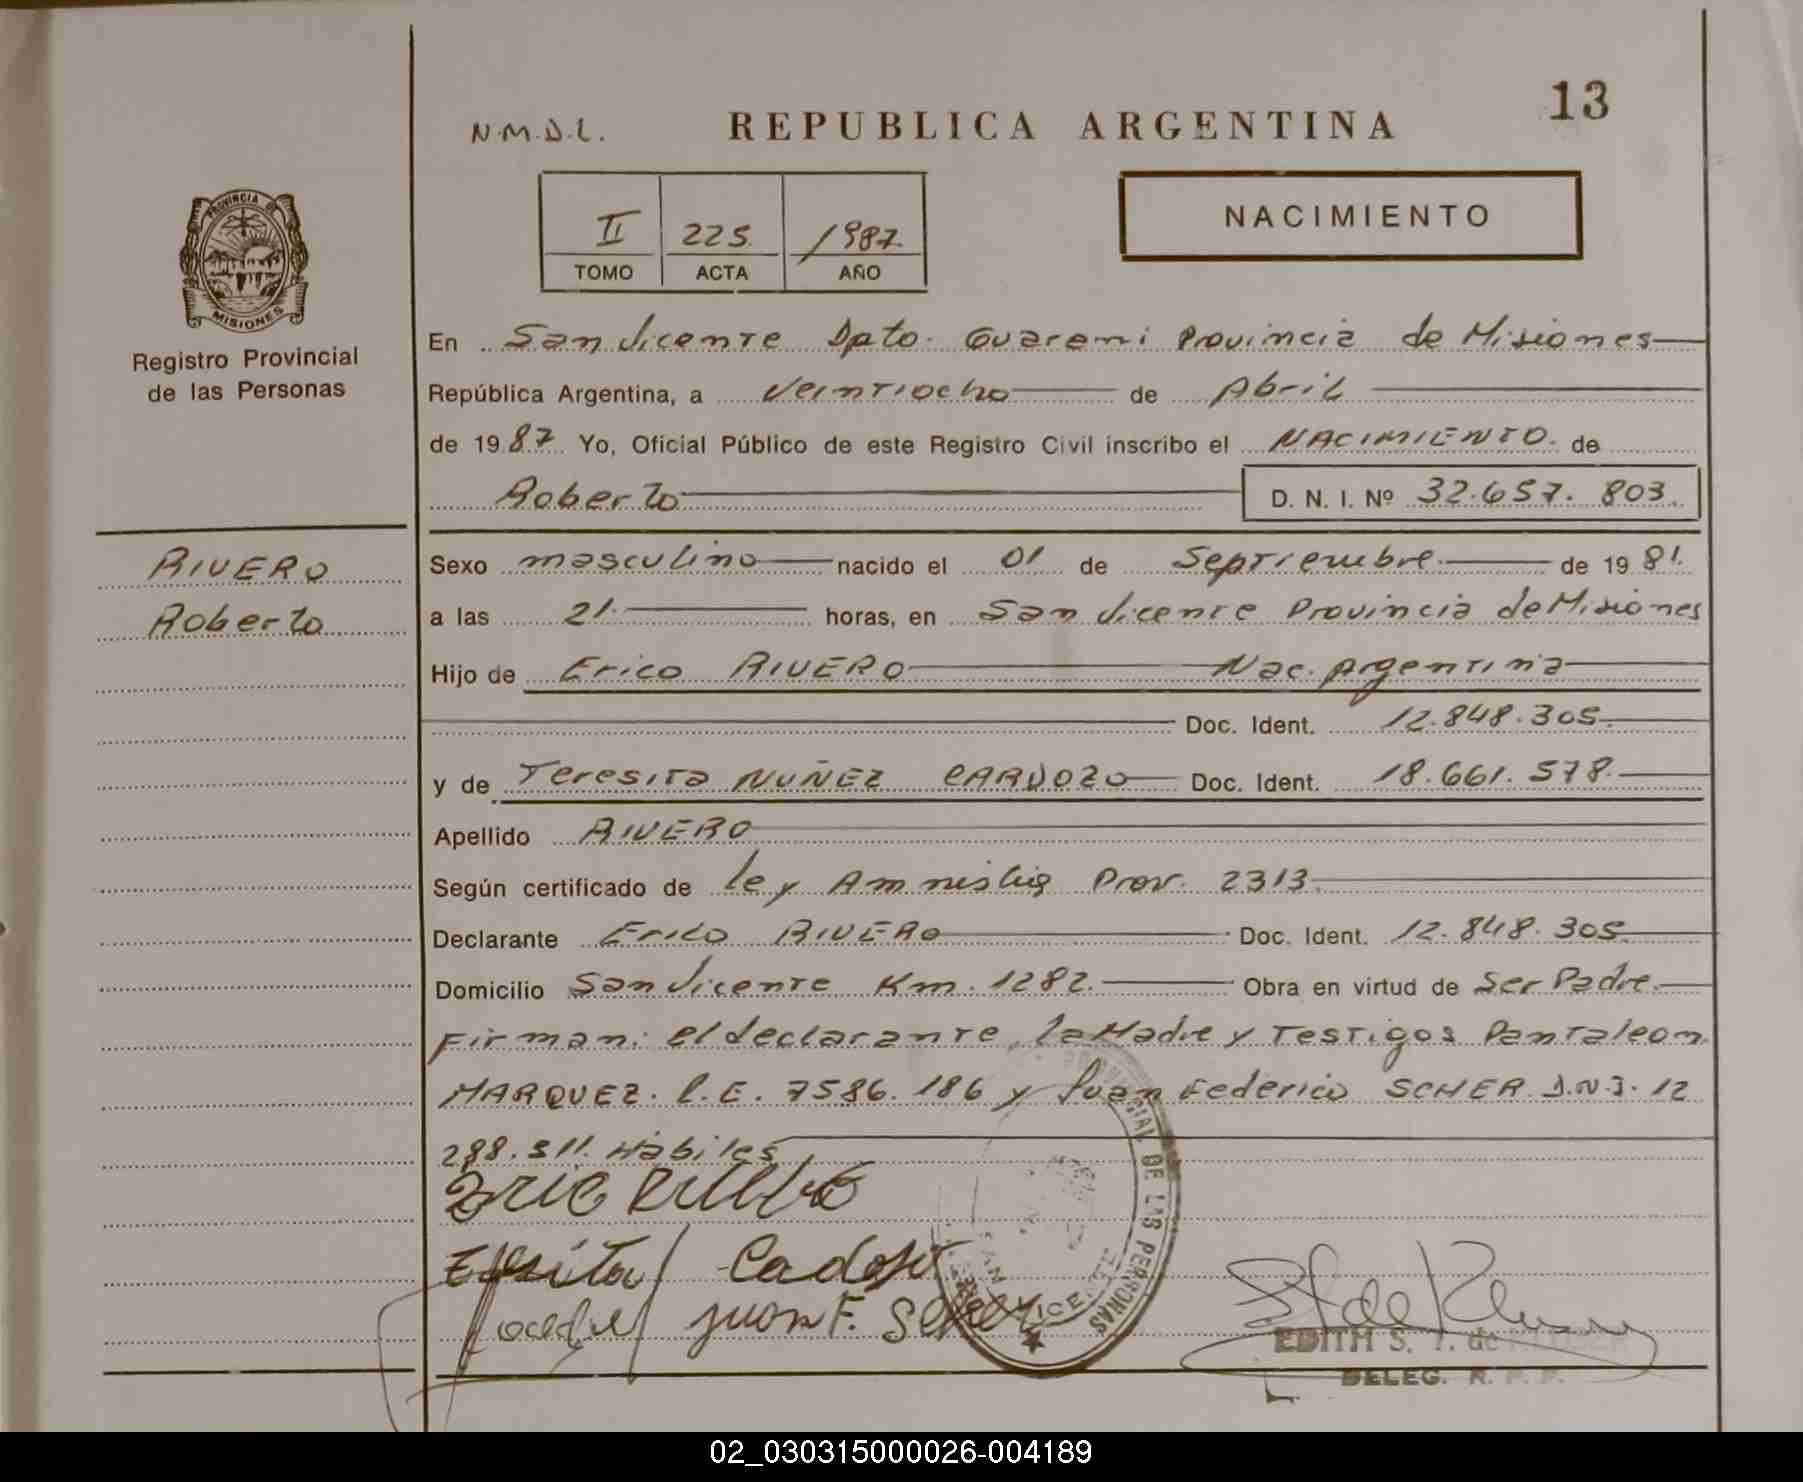 13
N.M.D.L. REPUBLICA ARGENTINA
II 225. 1987.
TOMO ACTA AÑO
NACIMIENTO
PROVINCIA DE
MISIONES
Registro Provincial
de las Personas
En San Vicente Dpto. Guarani Provincia de Misiones
República Argentina, a Veintiocho de Abril
de 1987. Yo, Oficial Público de este Registro Civil inscribo el NACIMIENTO. de
Roberto D. N. I. Nº 32.657.803.
RIVERO
Roberto
Sexo masculino nacido el 01 de Septiembre de 1981.
a las 21. horas, en San Vicente Provincia de Misiones
Hijo de Erico RIVERO Nac. Argentina
Doc. Ident. 12.848.305.
y de Teresita NUÑEZ CARDOZO Doc. Ident. 18.661.578.
Apellido RIVERO
Según certificado de ley Amnistia Prov. 2313.
Declarante Erico RIVERO Doc. Ident. 12.848.305.
Domicilio San Vicente Km. 1282. Obra en virtud de Ser Padre.
Firman: el declarante, la Madre y Testigos Pantaleon
MARQUEZ. L.E. 7586.186 y Juan Federico SCHER D.N.I. 12
288.511. Hábiles
Juan F. Scher
DE LAS PERSONAS
SAN VICENTE
EDITH S. T. de
DELEG. R. P. P.
02_030315000026-004189